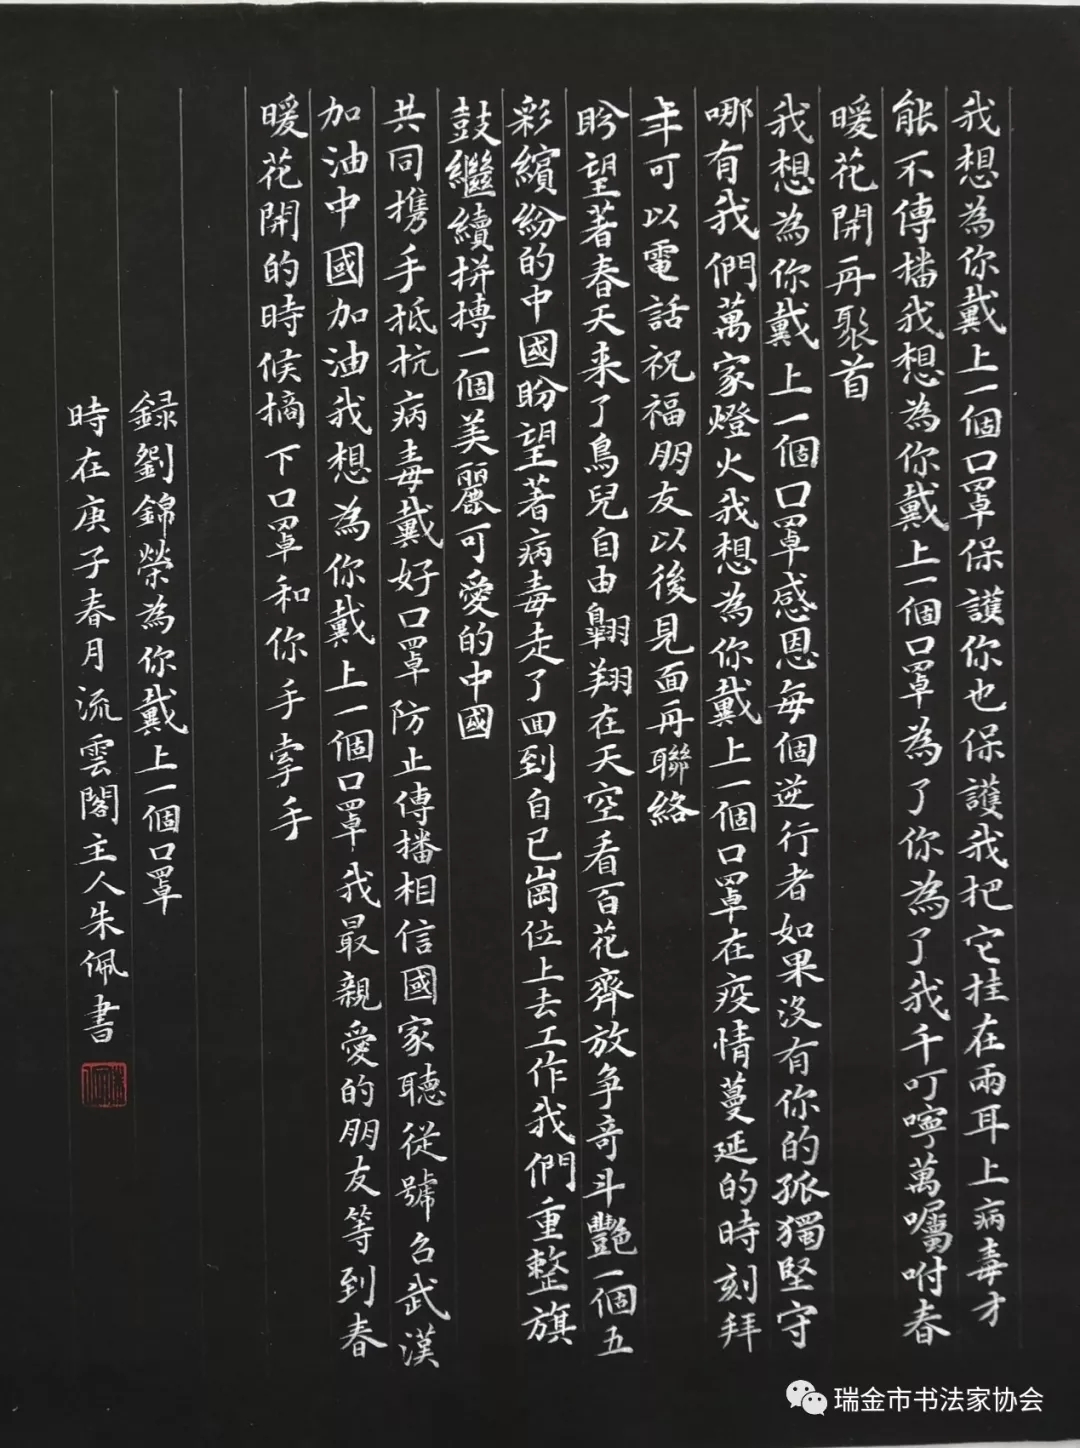 我想為你戴上一個口罩保護你也保護我把它挂在兩耳上病毒才
能不傳播我想為你戴上一個口罩為了你為了我千叮嚀萬囑咐春
暖花開再聚首
我想為你戴上一個口罩感恩每個逆行者如果沒有你的孤獨堅守
哪有我們萬家燈火我想為你戴上一個口罩在疫情蔓延的時刻拜
年可以電話祝福朋友以後見面再聯絡
盼望著春天来了鳥兒自由翱翔在天空看百花齊放争奇斗艷一個五
彩繽紛的中國盼望著病毒走了回到自已崗位上去工作我們重整旗
鼓繼續拼搏一個美麗可愛的中國
共同携手抵抗病毒戴好口罩防止傳播相信國家聽從號召武漢
加油中國加油我想為你戴上一個口罩我最親愛的朋友等到春
暖花開的時候摘下口罩和你手牽手
録劉錦榮為你戴上一個口罩
時在庚子春月流雲閣主人朱佩書
瑞金市书法家协会